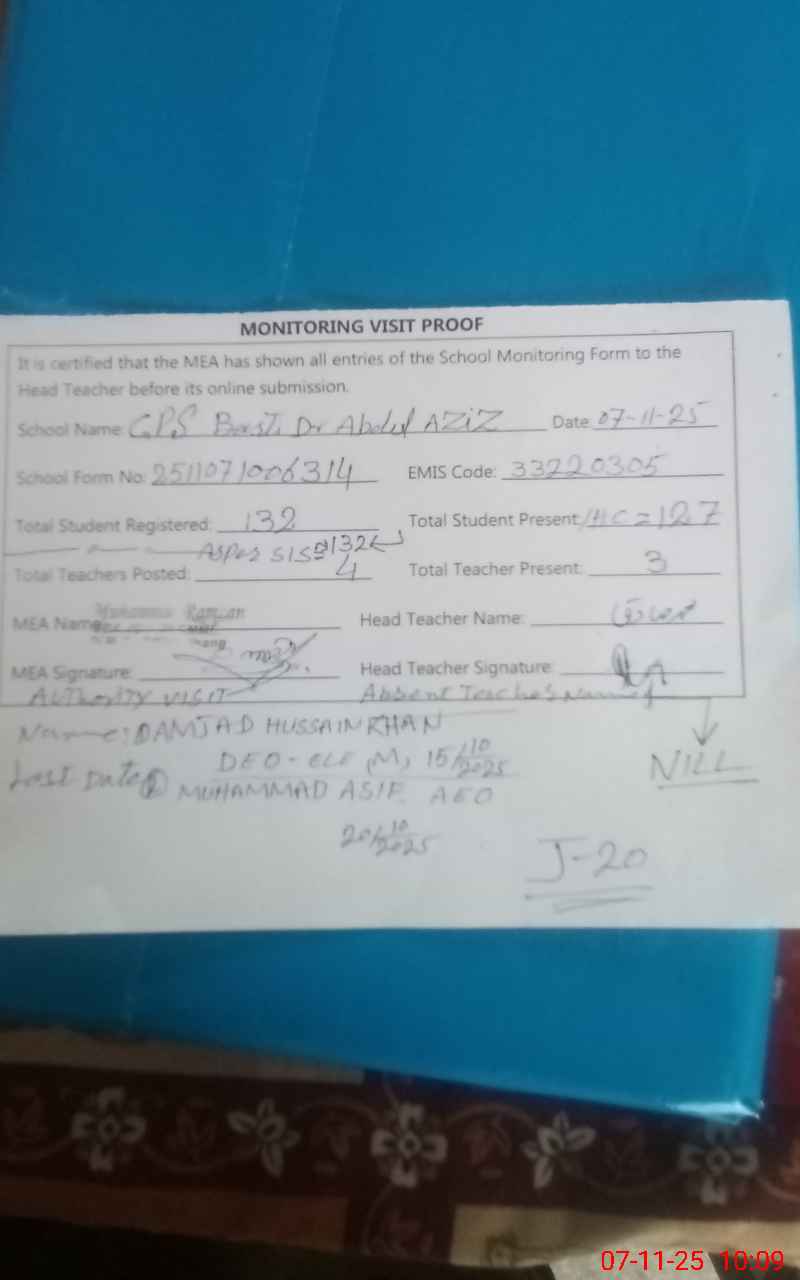 MONITORING VISIT PROOF
It is certified that the MEA has shown all entries of the School Monitoring Form to the
Head Teacher before its online submission.
School Name: GPS Basti Dr Abdul AZiZ Date: 07-11-25
School Form No: 2511071006314 EMIS Code: 33220305
Total Student Registered: 132 Total Student Present: /HC=127
As per SIS 132
Total Teachers Posted: 4 Total Teacher Present: 3
MEA Name: Ramzan Head Teacher Name:
MEA Signature: Head Teacher Signature:
AUTHORITY VISIT Absent Teacher Name
Name: AMJAD HUSSAIN KHAN
DEO-ELE (M) 15/10/2025
NILL
Last Date MUHAMMAD ASIF AEO
20/10/2025
J-20
07-11-25 10:09